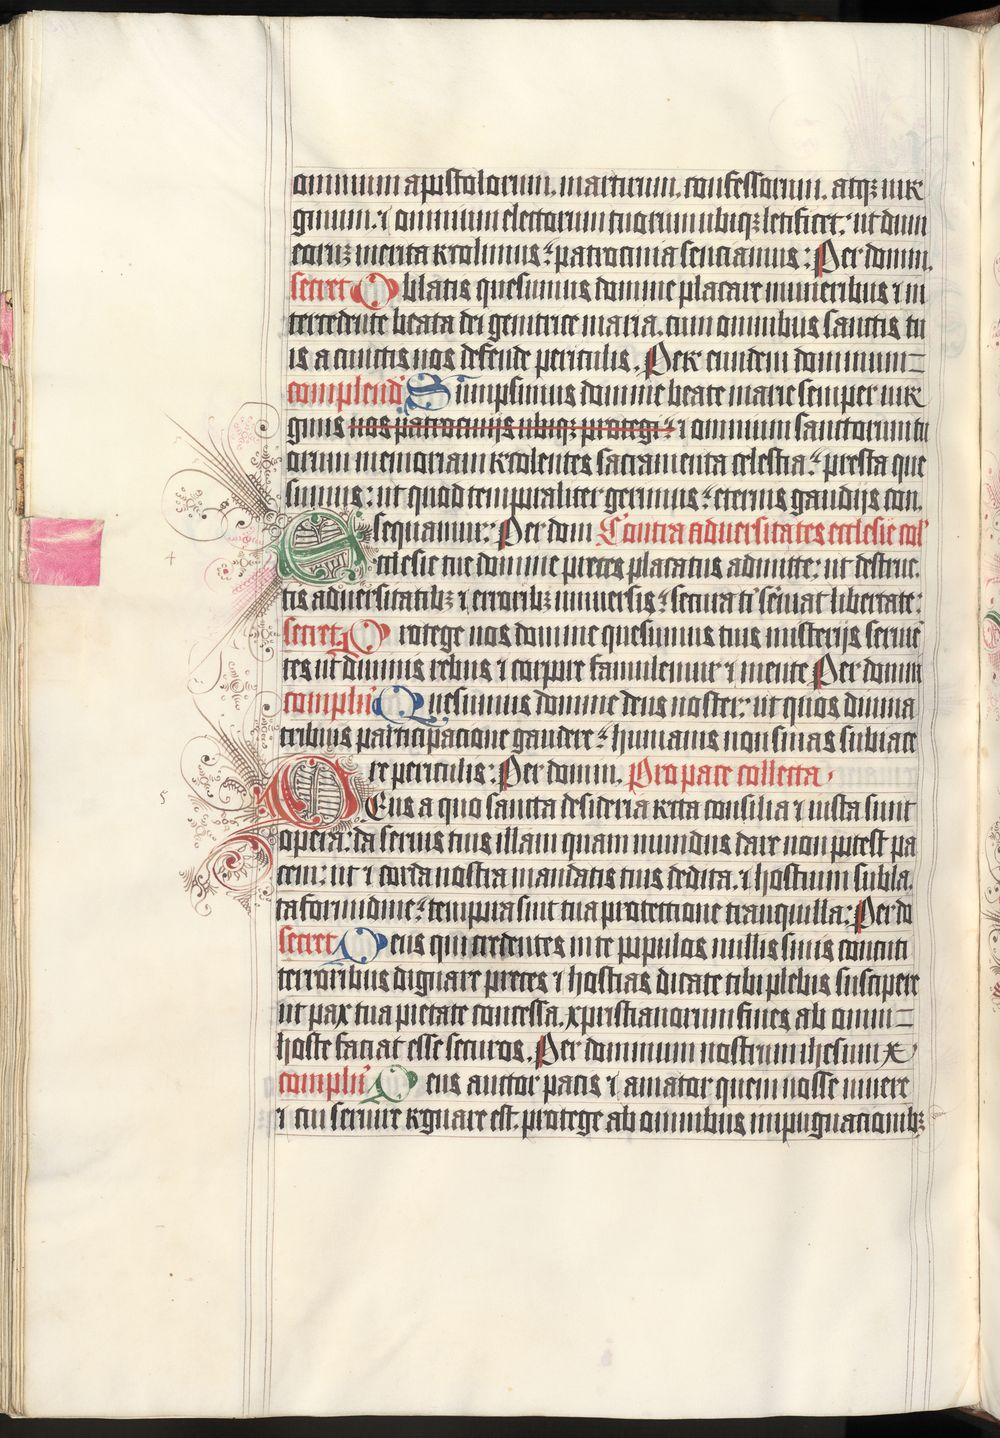 omnium apostolorum. martirum. confessorum. atqꝫ uir
ginum. ⁊ omnium electorum tuorum ubiqꝫ letificet: ut dum
eoruꝫ merita recolimus: patrocinia senciamus: Per domin.
secret Oblatis quesumus domine placare muneribus ⁊ in
tercedente beata dei genitrice maria. cum omnibus sanctis tu
is a cunctis nos defende periculis. Per eundem dominum
complend Sumpsimus domine beate marie semper uir
ginis nos patrocinijs ubiqꝫ protegi: ⁊ omnium sanctorum tu
orum memoriam recolentes sacramenta celestia: presta que
sumus: ut quod temporaliter gerimus: eternis gaudijs con.
sequamur: Per dom Contra aduersitates ecclesie col
Ecclesie tue domine preces placatus admitte: ut destruc.
tis aduersitatibꝫ ⁊ erroribꝫ uniuersis: secura ti seruiat libertate:
secret Protege nos domine quesumus tuis misterijs seruiē
tes ut diuinis rebus ⁊ corpore famulemur ⁊ mente Per domin
complen Quesumus domine deus noster: ut quos diuina
tribuis participacione gaudere: humanis non sinas subiace
re periculis: Per domin. Pro pace collecta.
Deus a quo sancta desideria recta consilia ⁊ iusta sunt
opera: da seruis tuis illam quam mundus dare non potest pa
cem: ut ⁊ corda nostra mandatis tuis dedita. ⁊ hostium subla.
ta formidine: tempora sint tua protectione tranquilla: Per do
secret Deus qui credentes in te populos nullis sinis concuti
terroribus dignare preces ⁊ hostias dicate tibi plebis suscipere
ut pax tua pietate concessa. xpristianorum fines ab omni
hoste faciat esse securos. Per dominum nostrum ihesum x
complen Deus auctor pacis ⁊ amator quem nosse uiuere
⁊ cui seruire regnare est. protege ab omnibus inpugnacionibꝫ
4
5